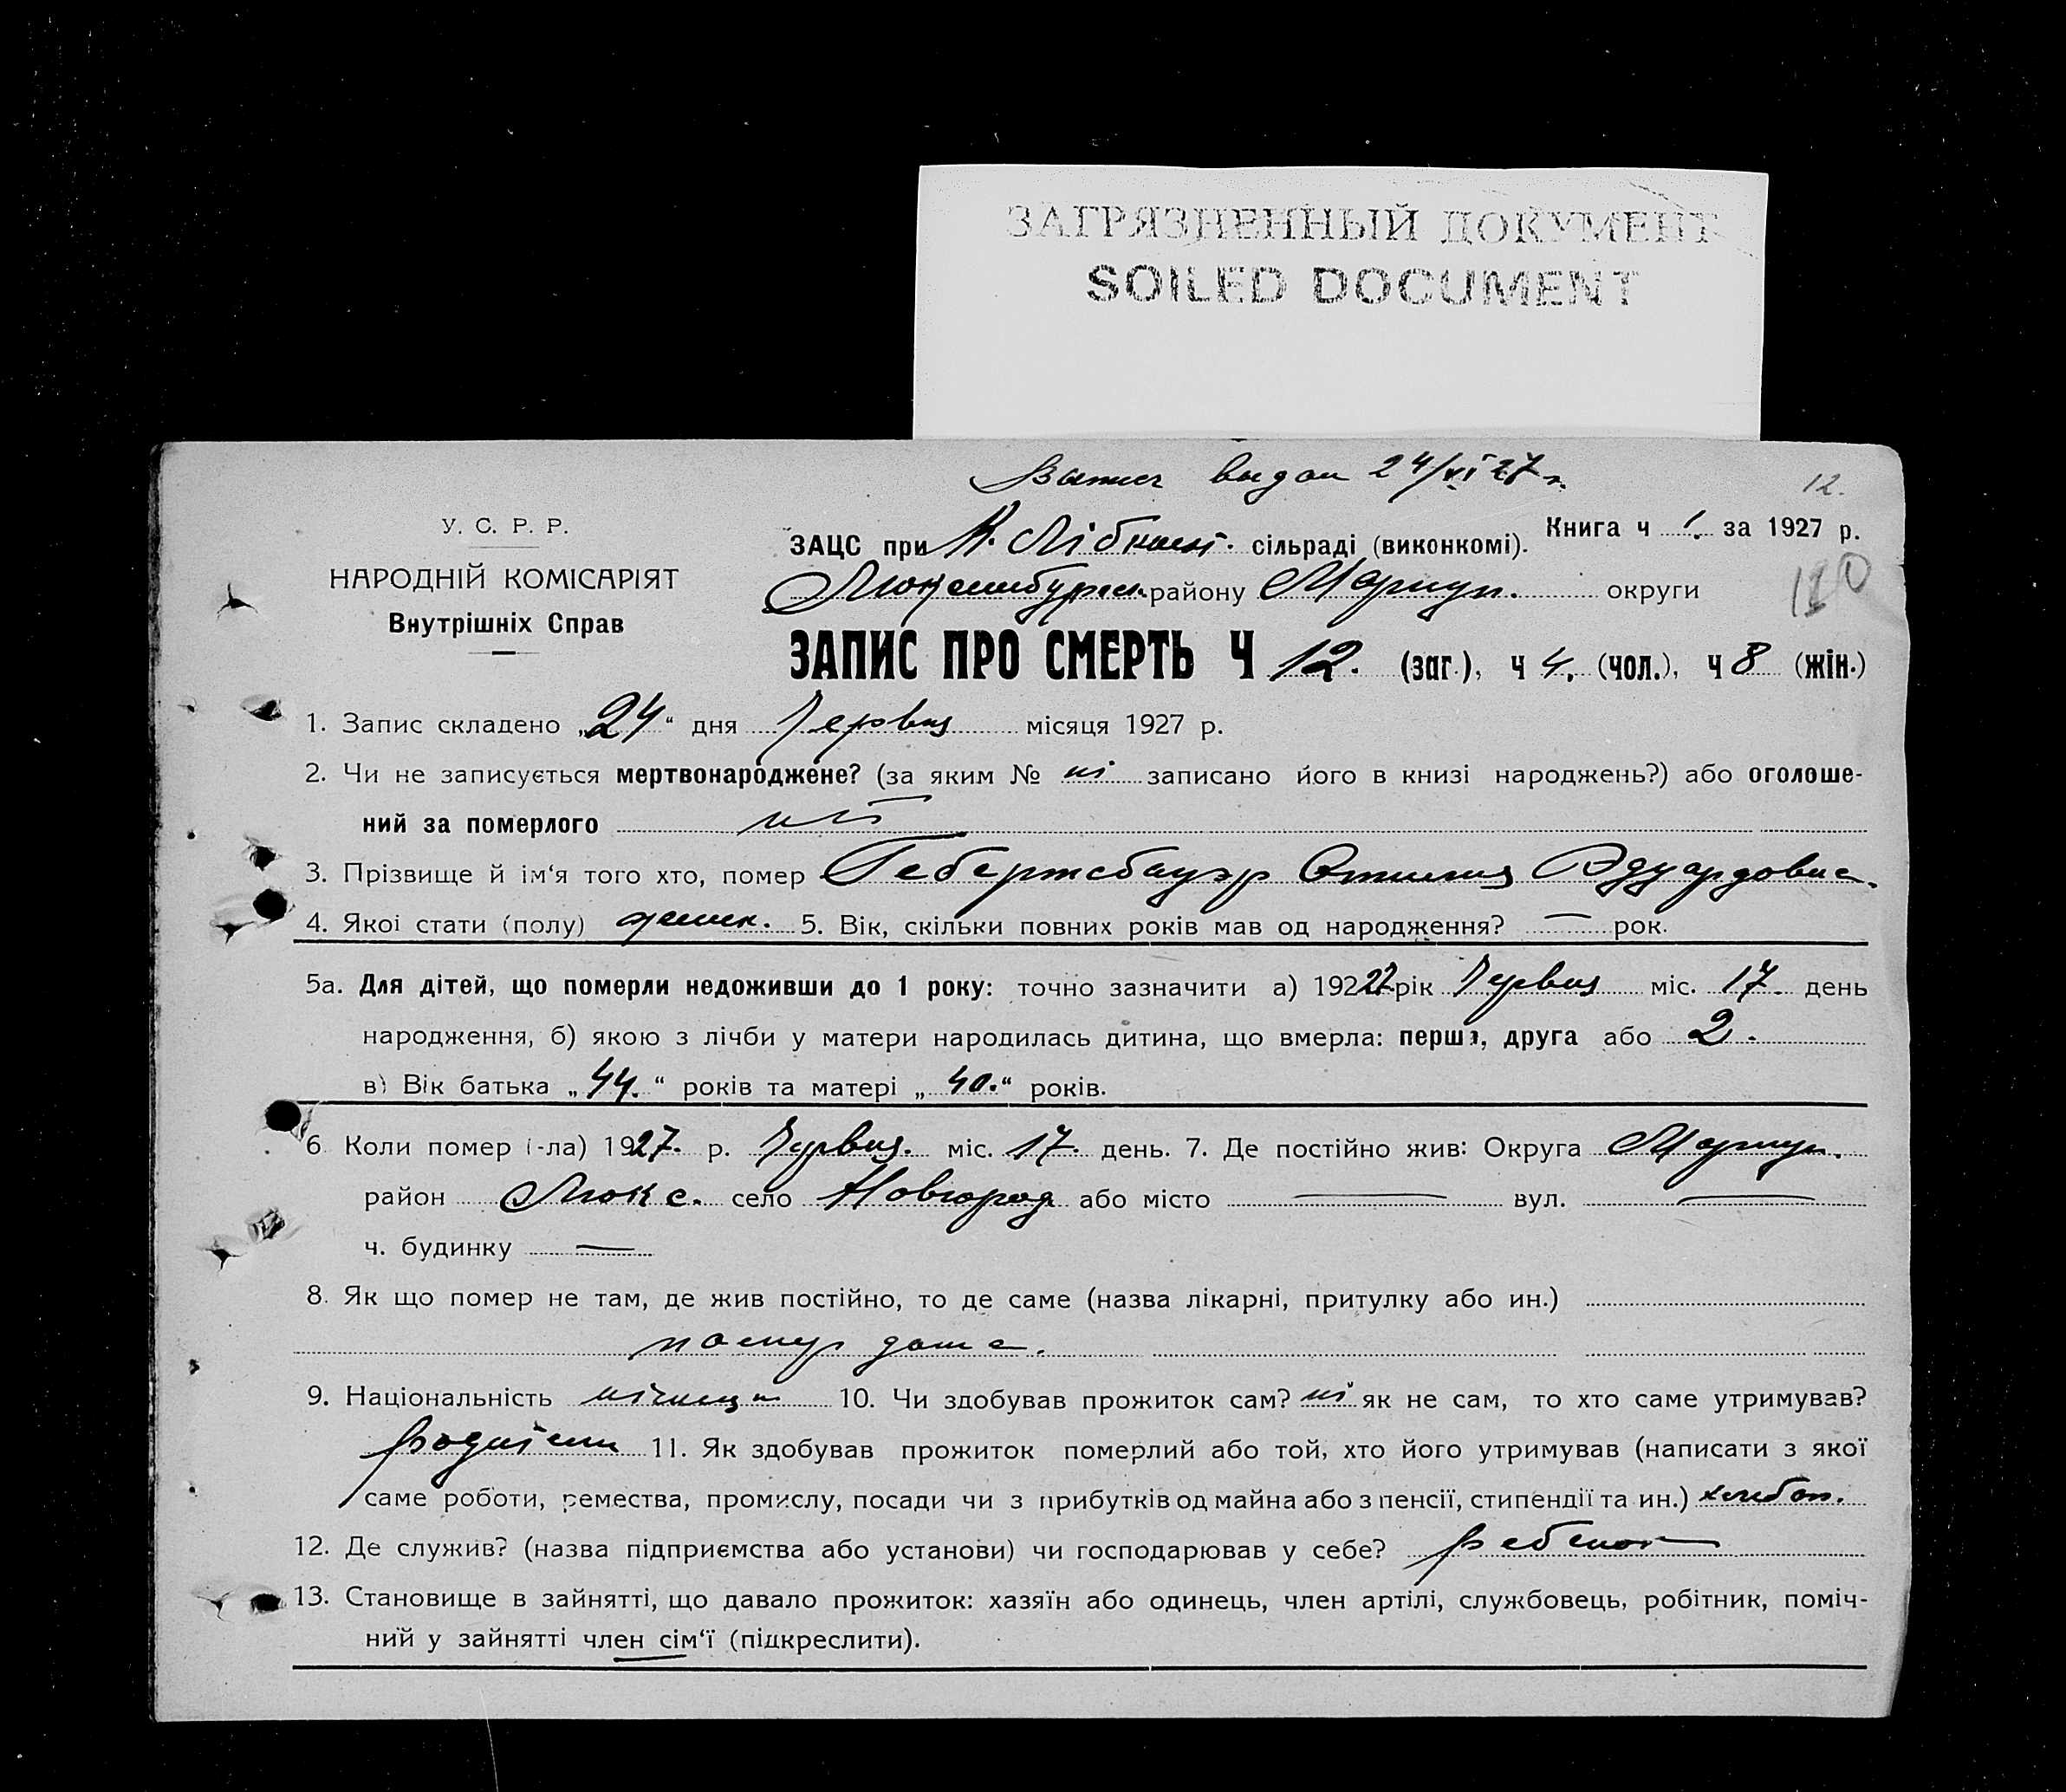 ЗАГРЯЗНЕННЫЙ ДОКУМЕНТ
SOILED DOCUMENT
Выпись выдан 24/VI 27 г.
12.
У. С. Р. Р.
НАРОДНІЙ КОМІСАРІЯТ
Внутрішніх Справ
ЗАЦС при К. Лібкнехт. сільраді (виконкомі). Книга ч 1. за 1927 р.
Люксембургск. району Маріуп. округи
110
ЗАПИС ПРО СМЕРТЬ Ч 12. (заг.), ч 4. (чол.), ч 8 (жін.)
1. Запис складено „24“ дня Червня місяця 1927 р.
2. Чи не записується мертвонароджене? (за яким № ні записано його в книзі народжень?) або оголоше-
ний за померлого ні
3. Прізвище й ім‘я того хто, помер Гебертсбауэр Отилия Эдуардовна.
4. Якої стати (полу) 5. Вік, скільки повних років мав од народження? — рок.
5а. Для дітей, що померли недоживши до 1 року: точно зазначити а) 192 рік Червня міс. 17. день
народження, б) якою з лічби у матери народилась дитина, що вмерла: перша, друга або 2.
в) Вік батька „44.“ років та матері „40.“ років.
6. Коли помер (-ла) 1927. р. Червня. міс. 17. день. 7. Де постійно жив: Округа Маріуп.
район Люкс. село Новгород або місто — вул. —
ч. будинку —
8. Як що помер не там, де жив постійно, то де саме (назва лікарні, притулку або ин.)
дома.
9. Національність німець 10. Чи здобував прожиток сам? ні як не сам, то хто саме утримував?
11. Як здобував прожиток померлий або той, хто його утримував (написати з якої
саме роботи, ремества, промислу, посади чи з прибутків од майна або з пенсії, стипендії та ин.) хлебоп.
12. Де служив? (назва підприємства або установи) чи господарював у себе? ребенок
13. Становище в зайнятті, що давало прожиток: хазяїн або одинець, член артілі, службовець, робітник, поміч-
ний у зайнятті член сім‘ї (підкреслити).